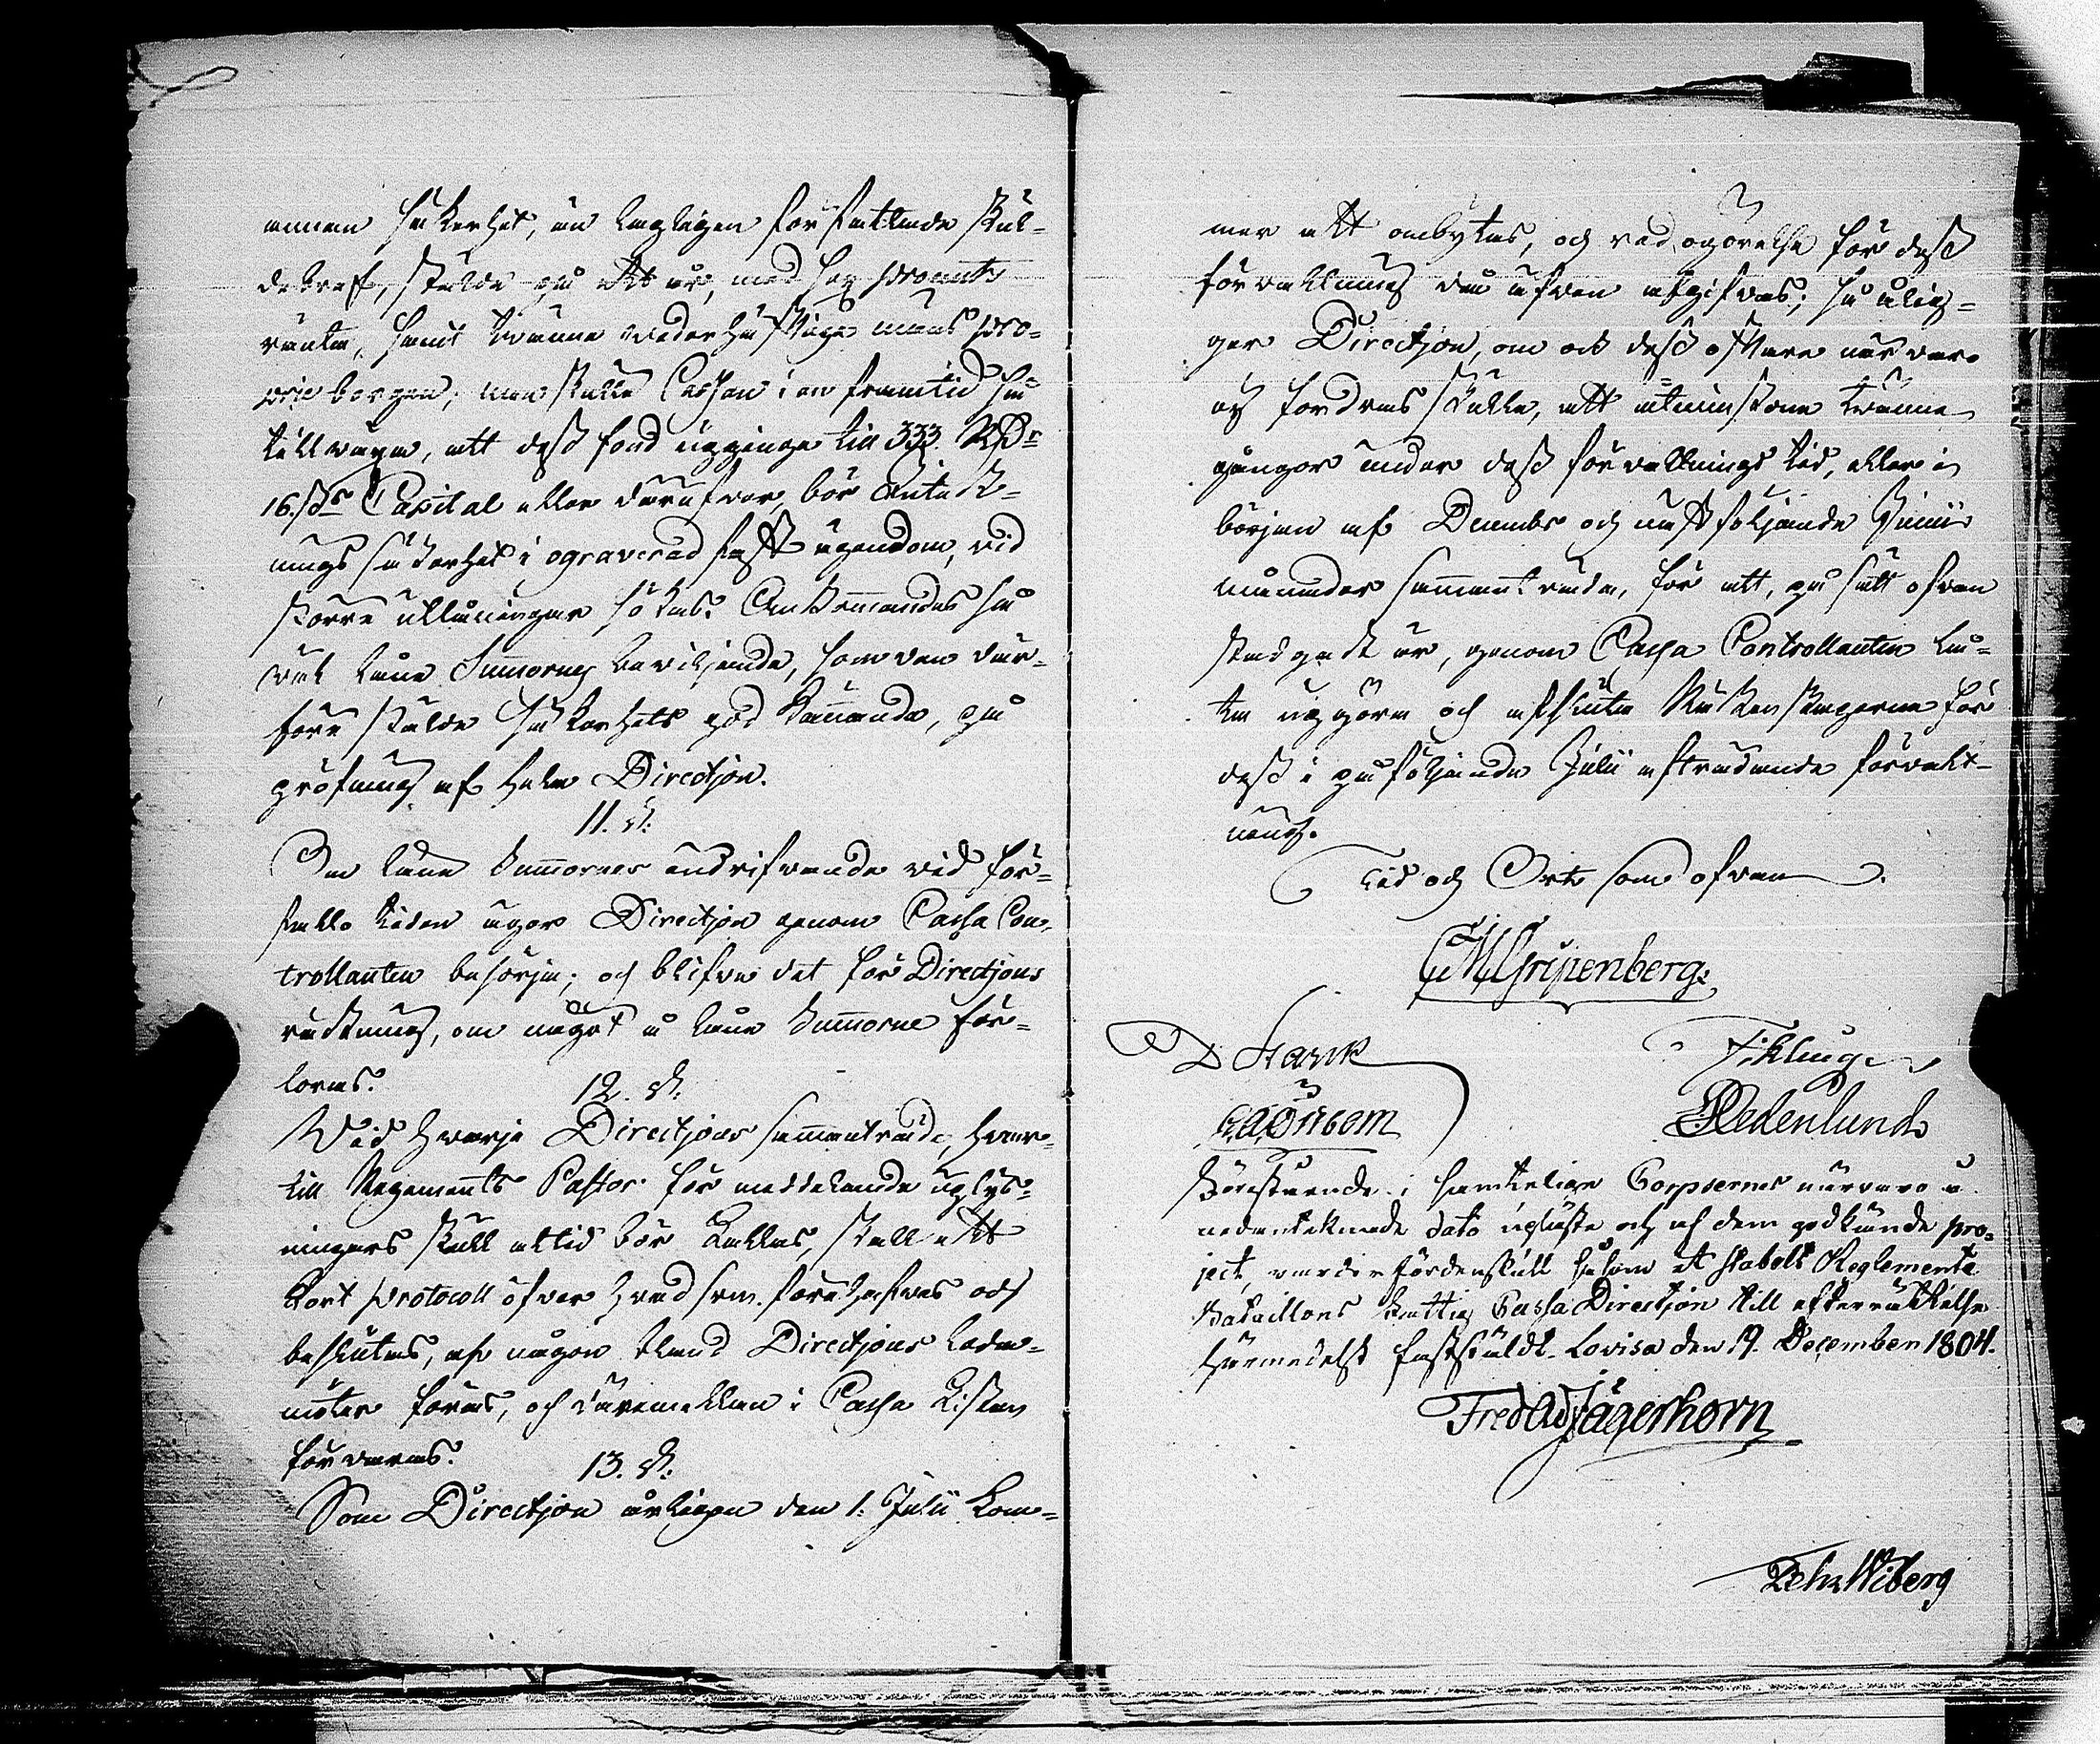 annan säkerhet, än lagligen författade Skul-
debref, stälde på ett år, med sex procents
ränta, samt tvänne vederhäftige mäns pro-
prie borgen; men skulle Cassan i en framtid så
tillväxa, att dess fond uppginge till 333 RDr
16 sk Capital eller därutöfver, bör Inteck-
nings säkerhet i ograverad fast egendom, vid
större utlåningar sökas. Ankommandes så
väl låne Summornes beviljande, som den där-
före stälde säkerhets god kännande, på
pröfning af hela Directjon.
11. §.
De låne Summornes indrifvande vid för-
fallo tiden äger Directjon genom Cassa Con-
trollanten besörja; och blifve det för Directjons
räkning, om något å låne Summorne för-
loras.
12. §.
Vid hvarje Directjons sammanträde, hvar-
till Regements Pastor för meddelande uplys-
ningars skull altid bör kallas, skall ett
kort protocoll öfver hvad som förehafves och
beslutes, af någon bland Directjons Leda-
möter föras, och däremellan i Cassa Kistan
förvaras.
13. §.
Som Directjon årligen den 1. Julii kom-
mer att ombytas, och redogörelse för dess
förvaltning då äfven afgifvas; så ålig-
ger Directjon, om ock dess oftare närvaro
ej fordras skulle, att åtminstone tvänne
gånger under dess förvaltnings tid, eller i
början af Decembr och nästföljande Junii
månader sammanträda, för att, på sätt ofvan
stadgadt är, genom Cassa Controllanten lå-
ta uppgöra och afsluta Räkenskaperne för
dess i påföljande Julii afträdande förvalt-
ning.
Tid och Ort som ofvan.
C M Gripenberg.
D Starck
F: Kluge
Hedenlund
Förestående i samtelige Corpsernes närvaro å
nedantecknade dato upläste och af dem godkände pro-
ject, varder fördenskull såsom et stabelt Reglemente
Bataillons Fattig Cassa Directjon till efterrättelse
härmedelst faststäldt. Lovisa den 19. December 1804.
Fred Ad Jägerhorn
Pehr Wiberg